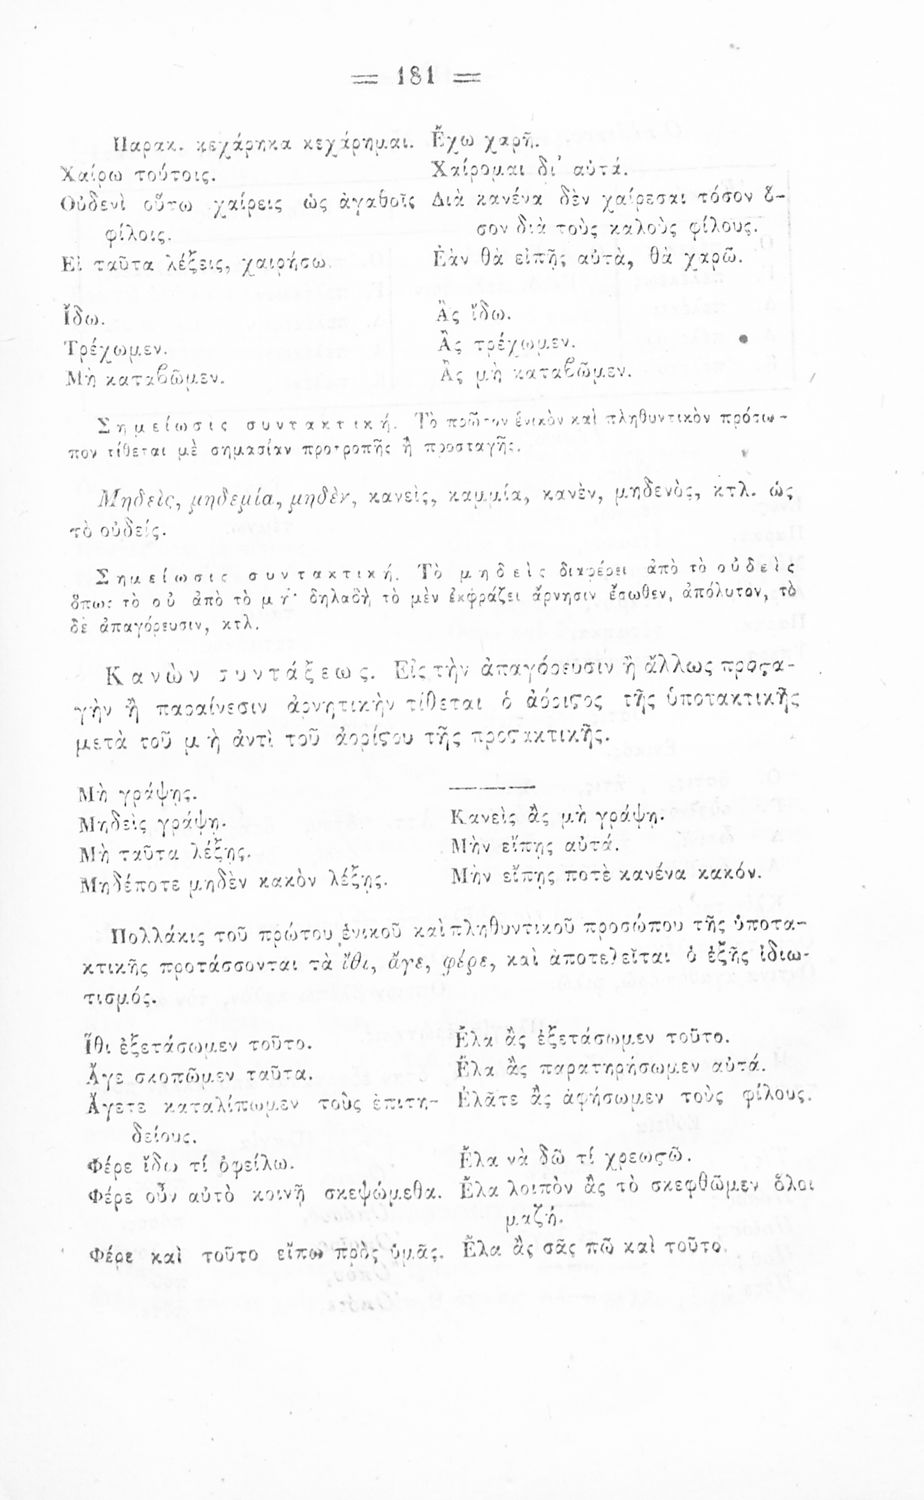 = 181 =
Παρακ. κεχάρηκα κεχάρημαι. Ἔχω χαρῆ.
Χαίρω τούτοις. Χαίρομαι δι' αὐτά.
Οὐδενὶ οὕτω χαίρεις ὡς ἀγαθοῖς Διὰ κανένα δὲν χαίρεσαι τόσον ὅ-
φίλοις. σον διὰ τοὺς καλοὺς φίλους.
Εἰ ταῦτα λέξεις, χαιρήσω. Ἐὰν θὰ εἰπῇς αὐτὰ, θὰ χαρῶ.
Ἴδω. Ἂς ἴδω.
Τρέχωμεν. Ἂς τρέχωμεν.
Μὴ καταβῶμεν. Ἂς μὴ καταβῶμεν.
Σημείωσις συντακτική. Τὸ πρῶτον ἑνικὸν καὶ πληθυντικὸν πρόσω-
πον τίθεται μὲ σημασίαν προτροπῆς ἢ προσταγῆς.
Μηδεὶς, μηδεμία, μηδὲν, κανεὶς, καμμία, κανὲν, μηδενὸς, κτλ. ὡς
τὸ οὐδείς.
Σημείωσις συντακτική. Τὸ μηδεὶς διαφέρει ἀπὸ τὸ οὐδεὶς
ὅπως τὸ οὐ ἀπὸ τὸ μή· δηλαδὴ τὸ μὲν ἐκφράζει ἄρνησιν ἔσωθεν, ἀπόλυτον, τὸ
δὲ ἀπαγόρευσιν, κτλ.
Κανὼν συντάξεως. Εἰς τὴν ἀπαγόρευσιν ἢ ἄλλως προϛα-
γὴν ἢ παραίνεσιν ἀρνητικὴν τίθεται ὁ ἀόριϛος τῆς ὑποτακτικῆς
μετὰ τοῦ μὴ ἀντὶ τοῦ ἀορίϛου τῆς προϛακτικῆς.
Μὴ γράψῃς. ———
Μηδεὶς γράψῃ. Κανεὶς ἂς μὴ γράψῃ.
Μὴ ταῦτα λέξῃς. Μὴν εἴπῃς αὐτά.
Μηδέποτε μηδὲν κακὸν λέξῃς. Μὴν εἴπῃς ποτὲ κανένα κακόν.
Πολλάκις τοῦ πρώτου ἑνικοῦ καὶ πληθυντικοῦ προσώπου τῆς ὑποτα-
κτικῆς προτάσσονται τὰ ἴθι, ἄγε, φέρε, καὶ ἀποτελεῖται ὁ ἑξῆς ἰδιω-
τισμός.
Ἴθι ἐξετάσωμεν τοῦτο. Ἔλα ἂς ἐξετάσωμεν τοῦτο.
Ἄγε σκοπῶμεν ταῦτα. Ἔλα ἂς παρατηρήσωμεν αὐτά.
Ἄγετε καταλίπωμεν τοὺς ἐπιτη- Ἐλᾶτε ἂς ἀφήσωμεν τοὺς φίλους.
δείους.
Φέρε ἴδω τί ὀφείλω. Ἔλα νὰ δῶ τί χρεωϛῶ.
Φέρε οὖν αὐτὸ κοινῇ σκεψώμεθα. Ἔλα λοιπὸν ἂς τὸ σκεφθῶμεν ὅλοι
μαζῆ.
Φέρε καὶ τοῦτο εἴπω πρὸς ὑμᾶς. Ἔλα ἂς σᾶς πῶ καὶ τοῦτο.